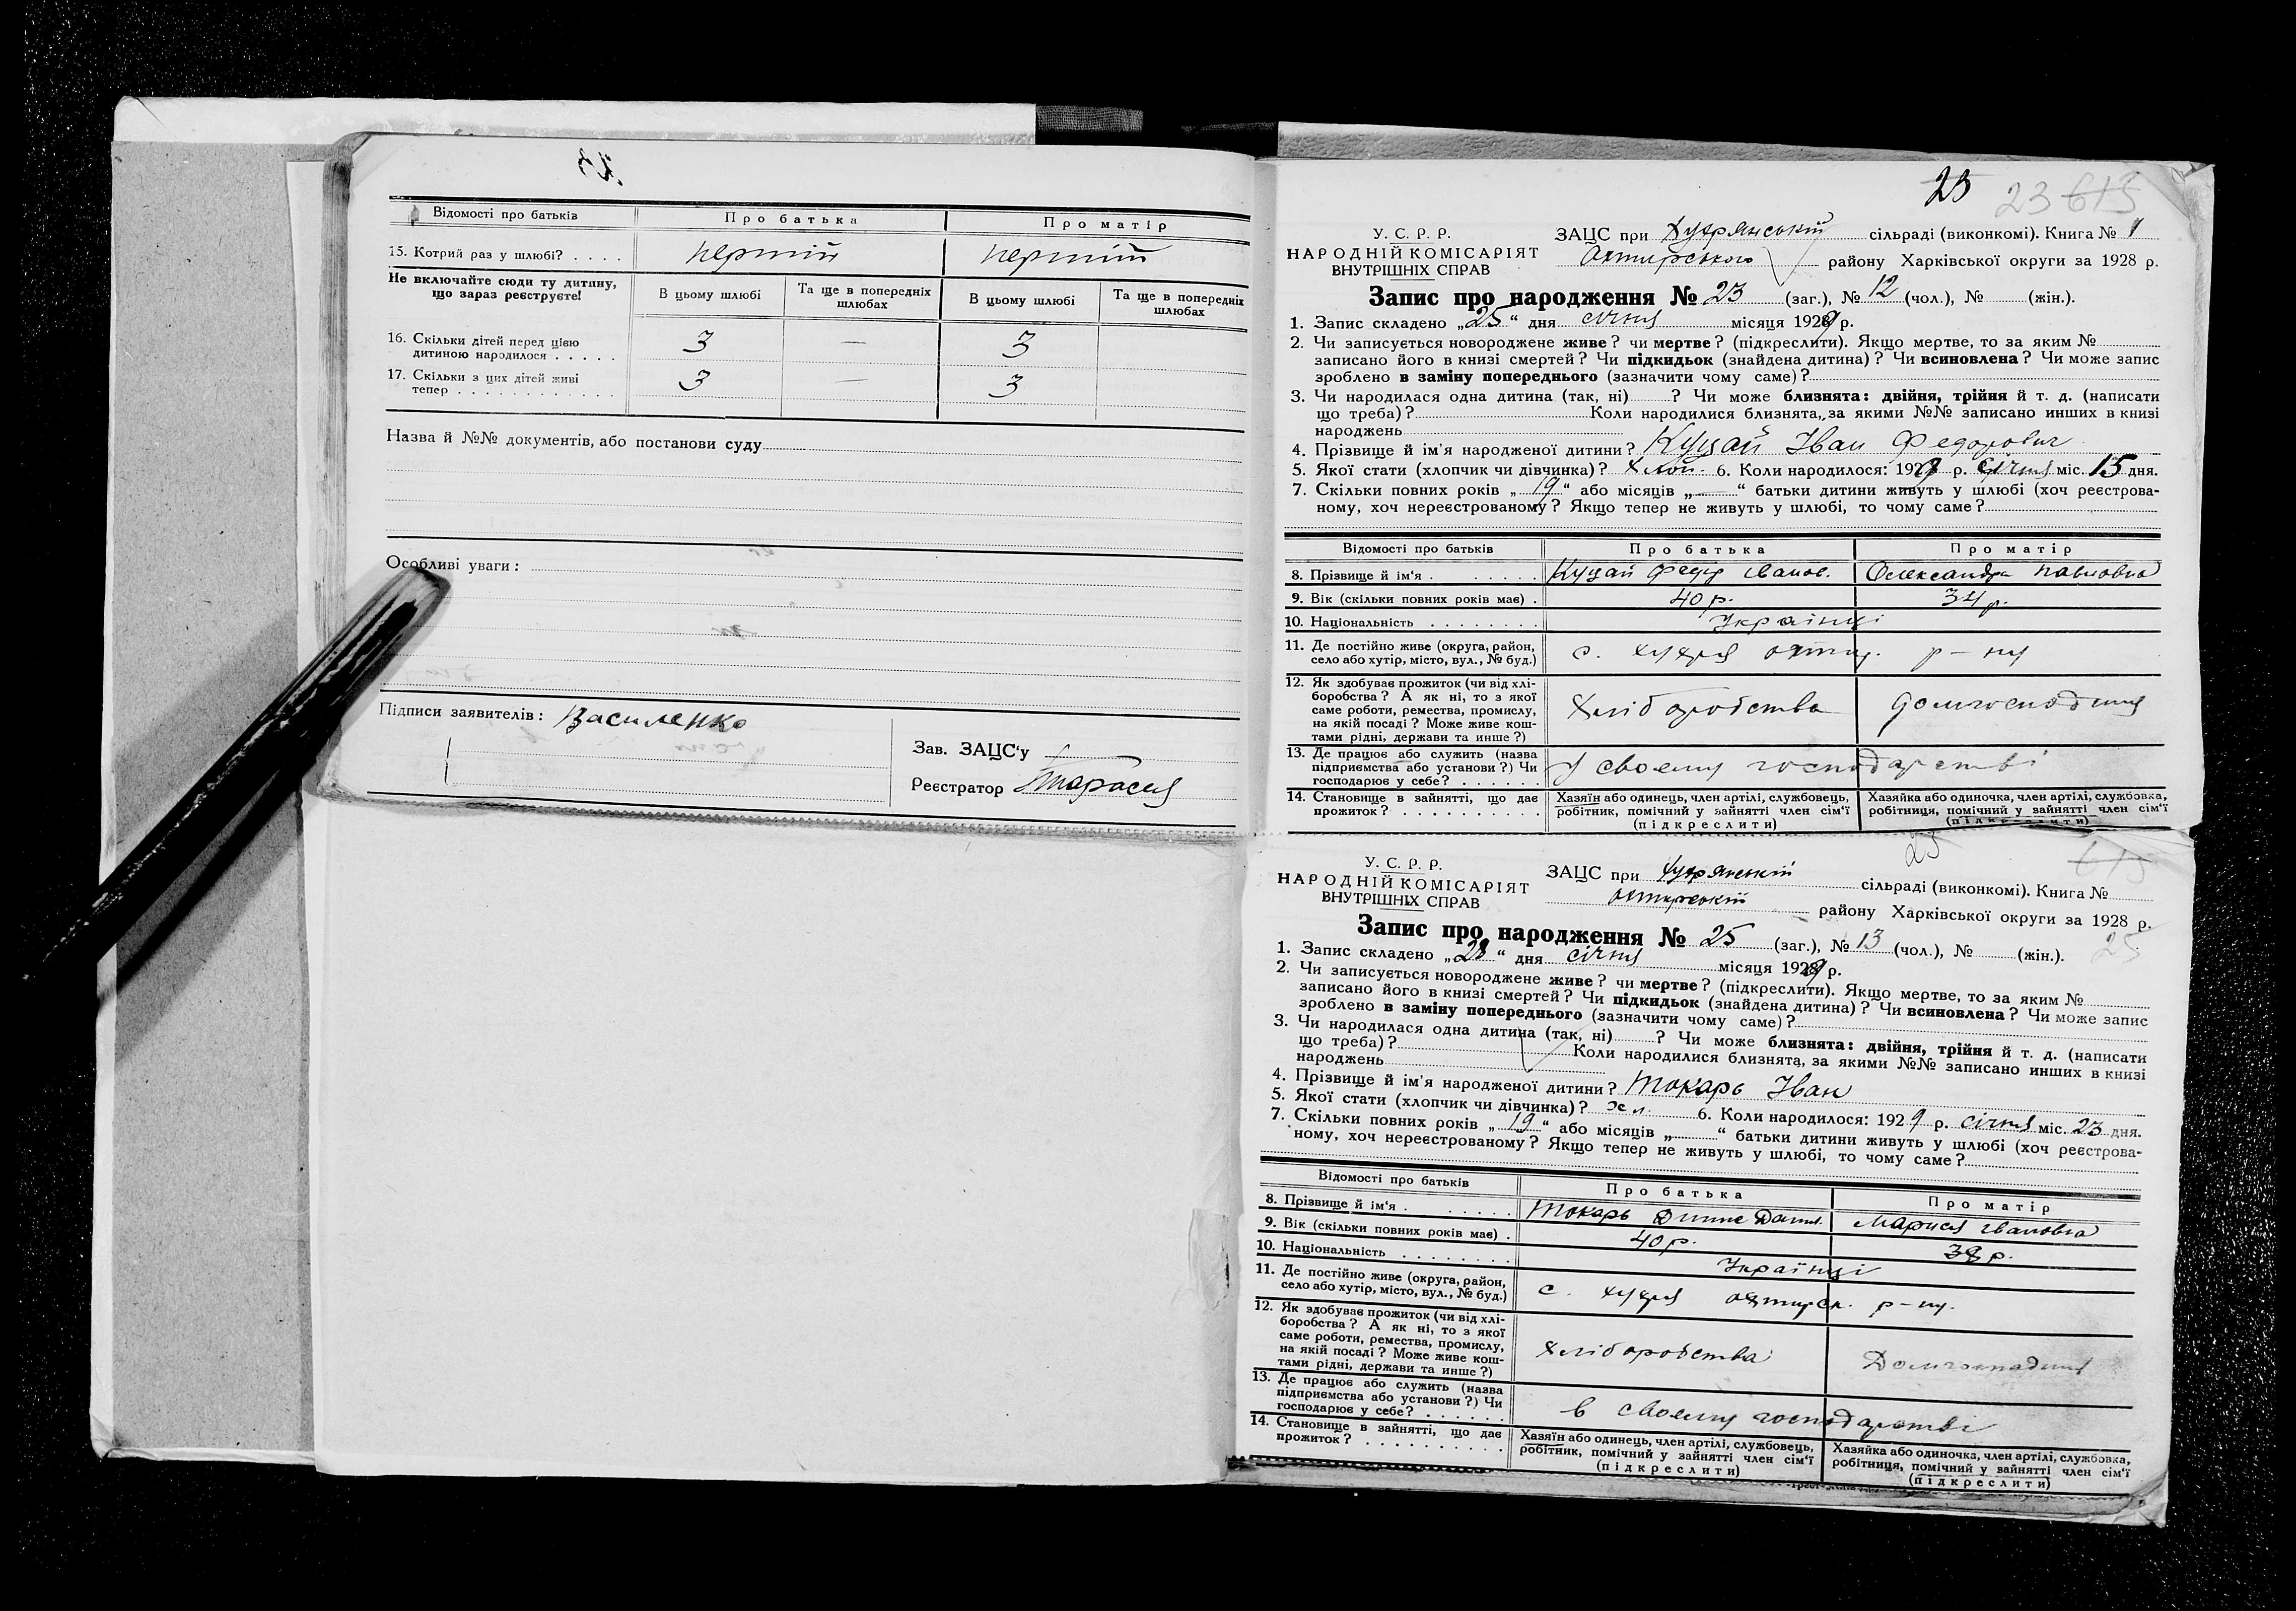 Відомості про батьків Про батька Про матір
15. Котрий раз у шлюбі? . . . . перший перший
Не включайте сюди ту дитину,
що зараз реєструєте!
В цьому шлюбі Та ще в попередніх шлюбах В цьому шлюбі Та ще в попередніх шлюбах
16. Скільки дітей перед цією
дитиною народилося . . . . . 3 — 3
17. Скільки з цих дітей живі
тепер . . . . . . . . . . . . 3 — 3
Назва й №№ документів, або постанови суду
Особливі уваги:
Підписи заявителів: Василенко
Зав. ЗАЦС'у
Реєстратор
23 23 613
У. С. Р. Р.
НАРОДНІЙ КОМІСАРІЯТ
ВНУТРІШНІХ СПРАВ
ЗАЦС при Хухрянській сільраді (виконкомі). Книга № 1
Охтирського району Харківської округи за 1928 р.
Запис про народження № 23 (заг.), № 12 (чол.), № (жін.).
1. Запис складено „25“ дня січня місяця 1929 р.
2. Чи записується новороджене живе? чи мертве? (підкреслити). Якщо мертве, то за яким №
записано його в книзі смертей? Чи підкидьок (знайдена дитина)? Чи всиновлена? Чи може запис
зроблено в заміну попереднього (зазначити чому саме)?
3. Чи народилася одна дитина (так, ні) ? Чи може близнята: двійня, трійня й т. д. (написати
що треба)? Коли народилися близнята, за якими №№ записано инших в книзі
народжень
4. Прізвище й ім'я народженої дитини? Куцай Іван Федорович
5. Якої стати (хлопчик чи дівчинка)? Хлоп. 6. Коли народилося: 1929 р. січня міс. 15 дня.
7. Скільки повних років „19“ або місяців „—“ батьки дитини живуть у шлюбі (хоч реєстрова-
ному, хоч нереєстрованому? Якщо тепер не живуть у шлюбі, то чому саме?
Відомості про батьків Про батька Про матір
8. Прізвище й ім'я . Куцай Федір Іванов. Олександра Павловна
9. Вік (скільки повних років має) . 40 р. 34 р.
10. Національність Українці
11. Де постійно живе (округа, район,
село або хутір, місто, вул., № буд.) с. Хухря Охтир. р-ну
12. Як здобуває прожиток (чи від хлі-
боробства? А як ні, то з якої
саме роботи, ремества, промислу,
на якій посаді? Може живе кош-
тами рідні, держави та инше?)
Хліборобства домгосподиня
13. Де працює або служить (назва
підприємства або установи?) Чи
господарює у себе? У своєму господарстві
14. Становище в зайнятті, що дає
прожиток?
Хазяїн або одинець, член артілі, службовець,
робітник, помічний у зайнятті член сім'ї
(підкреслити)
Хазяйка або одиночка, член артілі, службовка,
робітниця, помічний у зайнятті член сім'ї
(підкреслити)
25 613
У. С. Р. Р.
НАРОДНІЙ КОМІСАРІЯТ
ВНУТРІШНІХ СПРАВ
ЗАЦС при Хухрянській сільраді (виконкомі). Книга №
Охтирській району Харківської округи за 1928 р.
25
Запис про народження № 25 (заг.), № 13 (чол.), № (жін.).
1. Запис складено „28“ дня січня місяця 1929 р.
2. Чи записується новороджене живе? чи мертве? (підкреслити). Якщо мертве, то за яким №
записано його в книзі смертей? Чи підкидьок (знайдена дитина)? Чи всиновлена? Чи може запис
зроблено в заміну попереднього (зазначити чому саме)?
3. Чи народилася одна дитина (так, ні) ? Чи може близнята: двійня, трійня й т. д. (написати
що треба)? Коли народилися близнята, за якими №№ записано инших в книзі
народжень
4. Прізвище й ім'я народженої дитини? Токарь Іван
5. Якої стати (хлопчик чи дівчинка)? хл. 6. Коли народилося: 1929 р. січня міс. 23 дня.
7. Скільки повних років „19“ або місяців „ “ батьки дитини живуть у шлюбі (хоч реєстрова-
ному, хоч нереєстрованому? Якщо тепер не живуть у шлюбі, то чому саме?
Відомості про батьків Про батька Про матір
8. Прізвище й ім'я . Токарь Мария Івановна
9. Вік (скільки повних років має) . 40 р. 38 р.
10. Національність Українці
11. Де постійно живе (округа, район,
село або хутір, місто, вул., № буд.) с. Хухря Охтирск. р-ну.
12. Як здобуває прожиток (чи від хлі-
боробства? А як ні, то з якої
саме роботи, ремества, промислу,
на якій посаді? Може живе кош-
тами рідні, держави та инше?)
Хліборобства Домгосподиня
13. Де працює або служить (назва
підприємства або установи?) Чи
господарює у себе? в своєму господарстві
14. Становище в зайнятті, що дає
прожиток?
Хазяїн або одинець, член артілі, службовець,
робітник, помічний у зайнятті член сім'ї
(підкреслити)
Хазяйка або одиночка, член артілі, службовка,
робітниця, помічний у зайнятті член сім'ї
(підкреслити)